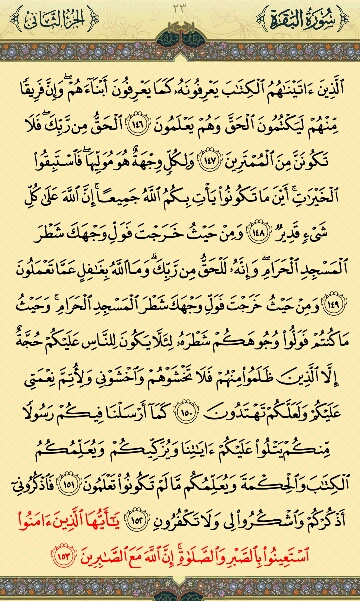 سُورَةُ البَقَرَة ٢٣ الجزء الثاني
الَّذِينَ ءَاتَيْنَاهُمُ الْكِتَابَ يَعْرِفُونَهُ كَمَا يَعْرِفُونَ أَبْنَاءَهُمْ ۖ وَإِنَّ فَرِيقًا
مِّنْهُمْ لَيَكْتُمُونَ الْحَقَّ وَهُمْ يَعْلَمُونَ ﴿١٤٦﴾ الْحَقُّ مِن رَّبِّكَ ۖ فَلَا
تَكُونَنَّ مِنَ الْمُمْتَرِينَ ﴿١٤٧﴾ وَلِكُلٍّ وِجْهَةٌ هُوَ مُوَلِّيهَا ۖ فَاسْتَبِقُوا
الْخَيْرَاتِ ۚ أَيْنَ مَا تَكُونُوا يَأْتِ بِكُمُ اللَّهُ جَمِيعًا ۚ إِنَّ اللَّهَ عَلَىٰ كُلِّ
شَيْءٍ قَدِيرٌ ﴿١٤٨﴾ وَمِنْ حَيْثُ خَرَجْتَ فَوَلِّ وَجْهَكَ شَطْرَ
الْمَسْجِدِ الْحَرَامِ ۖ وَإِنَّهُ لَلْحَقُّ مِن رَّبِّكَ ۗ وَمَا اللَّهُ بِغَافِلٍ عَمَّا تَعْمَلُونَ
﴿١٤٩﴾ وَمِنْ حَيْثُ خَرَجْتَ فَوَلِّ وَجْهَكَ شَطْرَ الْمَسْجِدِ الْحَرَامِ ۚ وَحَيْثُ
مَا كُنتُمْ فَوَلُّوا وُجُوهَكُمْ شَطْرَهُ لِئَلَّا يَكُونَ لِلنَّاسِ عَلَيْكُمْ حُجَّةٌ
إِلَّا الَّذِينَ ظَلَمُوا مِنْهُمْ فَلَا تَخْشَوْهُمْ وَاخْشَوْنِي وَلِأُتِمَّ نِعْمَتِي
عَلَيْكُمْ وَلَعَلَّكُمْ تَهْتَدُونَ ﴿١٥٠﴾ كَمَا أَرْسَلْنَا فِيكُمْ رَسُولًا
مِّنكُمْ يَتْلُوا عَلَيْكُمْ ءَايَاتِنَا وَيُزَكِّيكُمْ وَيُعَلِّمُكُمُ
الْكِتَابَ وَالْحِكْمَةَ وَيُعَلِّمُكُم مَّا لَمْ تَكُونُوا تَعْلَمُونَ ﴿١٥١﴾ فَاذْكُرُونِي
أَذْكُرْكُمْ وَاشْكُرُوا لِي وَلَا تَكْفُرُونِ ﴿١٥٢﴾ يَا أَيُّهَا الَّذِينَ ءَامَنُوا
اسْتَعِينُوا بِالصَّبْرِ وَالصَّلَاةِ ۚ إِنَّ اللَّهَ مَعَ الصَّابِرِينَ ﴿١٥٣﴾